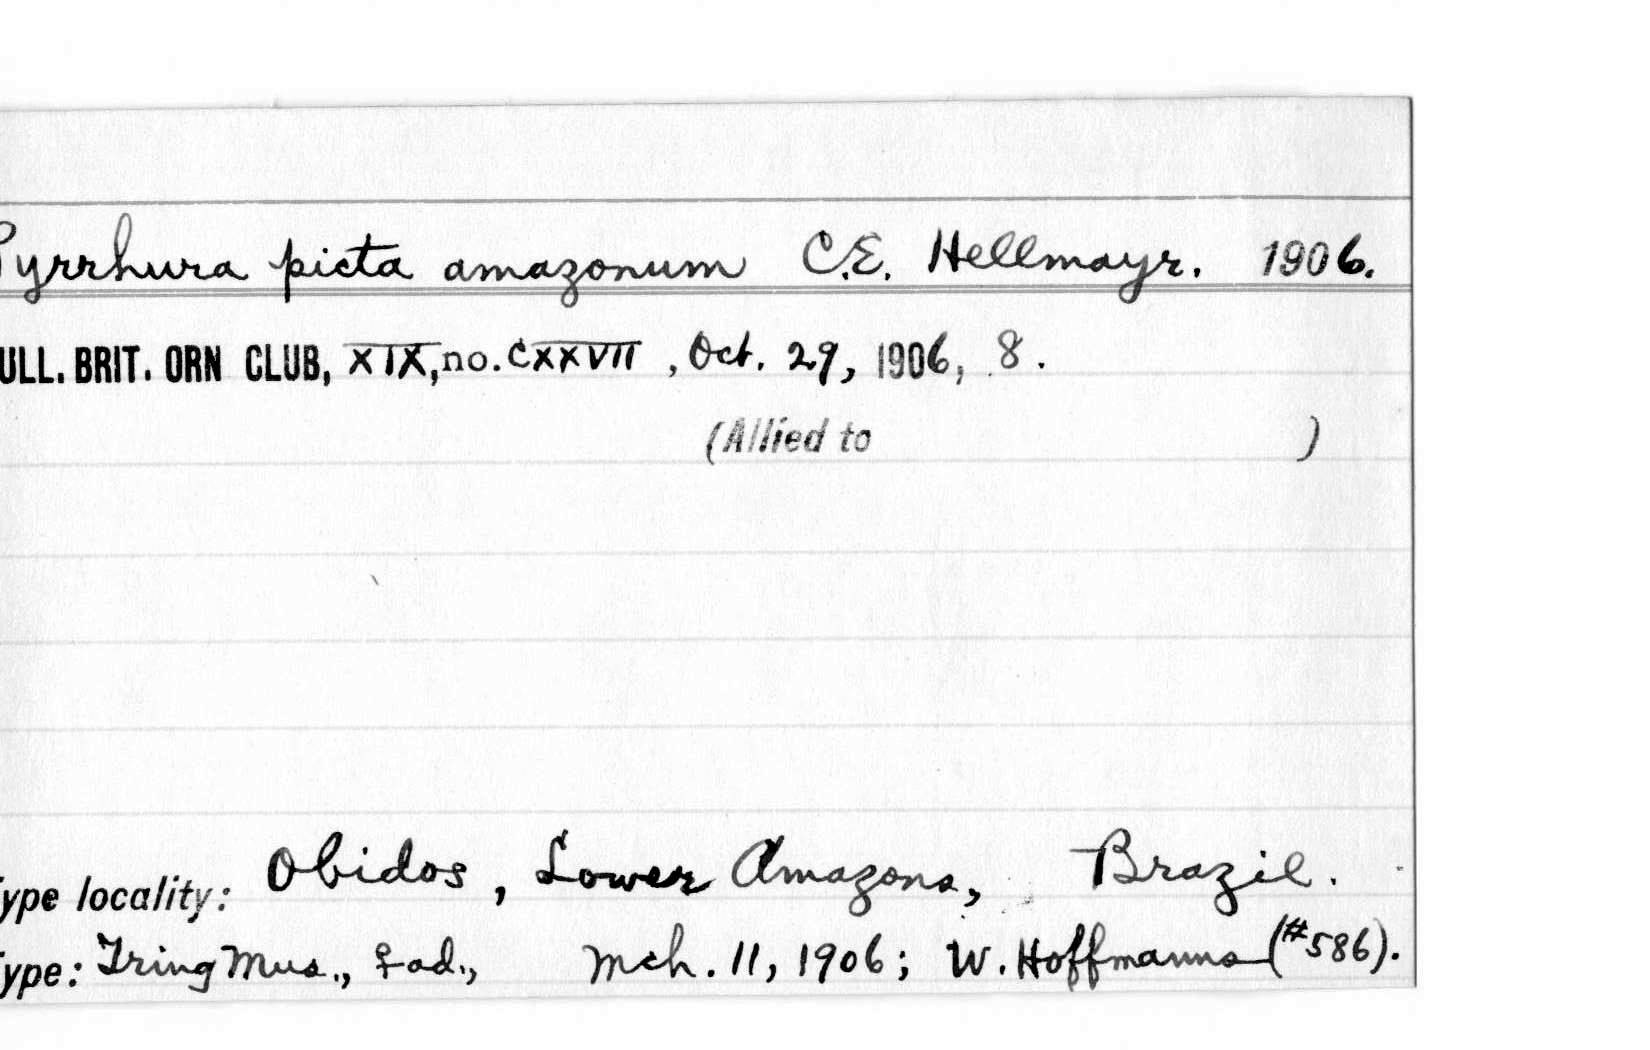 Pyrrhura picta amazonum C.E. Hellmayr. 1906.
ULL. BRIT. ORN CLUB, XIX, no. CXXVII, Oct. 29, 1906, 8.
(Allied to )
ype locality: Obidos, Lower Amazons, Brazil.
ype: Tring Mus., ♀ ad., Mch. 11, 1906; W. Hoffmanns (#586).